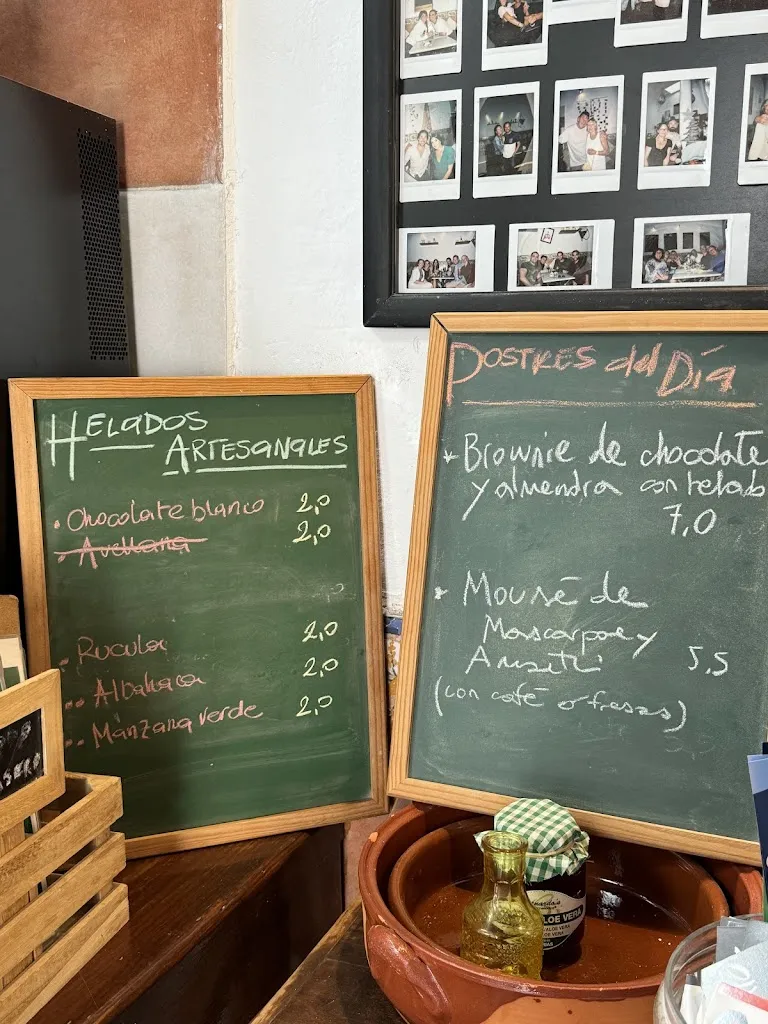 HELADOS
ARTESANALES
• Chocolate blanco 2,0
• Avellana 2,0
• Rucula 2,0
• Albahaca 2,0
• Manzana verde 2,0
POSTRES del Día
* Brownie de chocolate
y almendra con helado
7,0
* Mousse de
Mascarpone y
5,5
(con café o fresas)
ALOE VERA